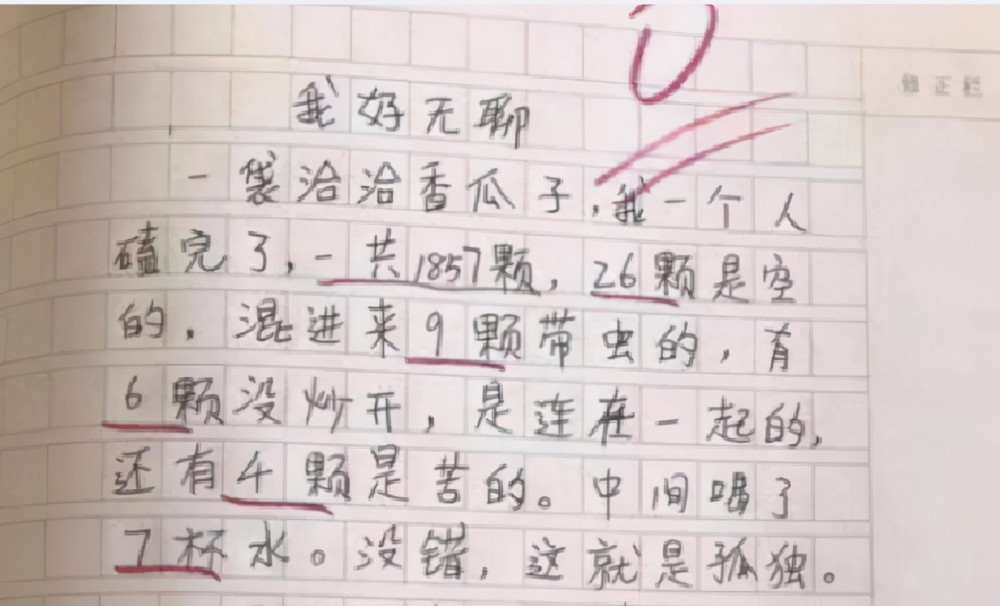 修正栏
我好无聊
一袋洽洽香瓜子,我一个人
磕完了,一共1857颗,26颗是空
的,混进来9颗带虫的,有
6颗没炒开,是连在一起的,
还有4颗是苦的。中间喝了
7杯水。没错,这就是孤独。